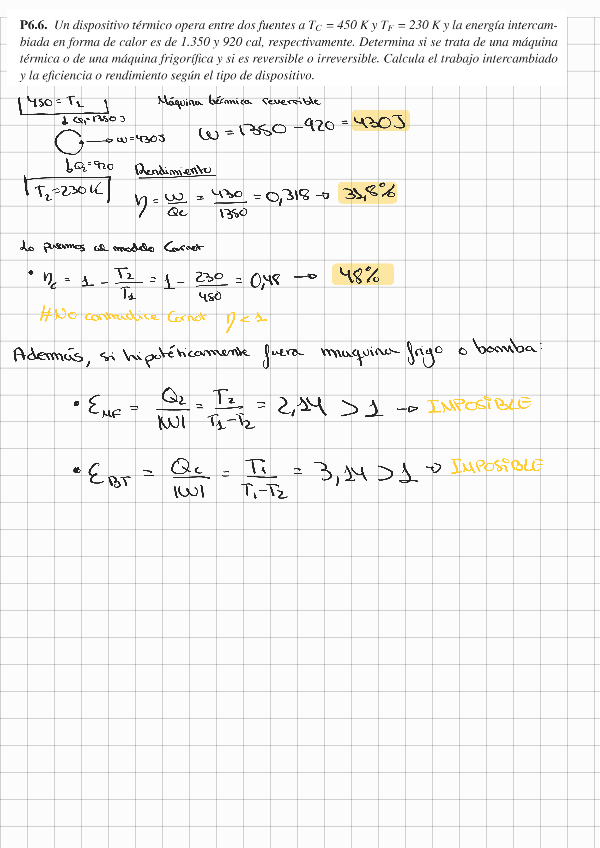 P6.6. Un dispositivo térmico opera entre dos fuentes a T_C = 450 K y T_F = 230 K y la energía intercam-
biada en forma de calor es de 1.350 y 920 cal, respectivamente. Determina si se trata de una máquina
térmica o de una máquina frigorífica y si es reversible o irreversible. Calcula el trabajo intercambiado
y la eficiencia o rendimiento según el tipo de dispositivo.
450 = T1
Máquina térmica reversible
Q1=1350 J
W=430J
W = 1350 - 920 = 430J
Q2=920
T2=230K
Rendimiento
η = W/Qc = 430/1350 = 0,318 → 31,8%
Lo pasamos al modelo Carnot
• ηc = 1 - T2/T1 = 1 - 230/450 = 0,48 → 48%
#No contradice Carnot η < 1
Además, si hipotéticamente fuera maquina frigo o bomba:
• εMF = Q2/|W| = T2/(T1-T2) = 2,14 > 1 → IMPOSIBLE
• εBT = Qc/|W| = T1/(T1-T2) = 3,14 > 1 → IMPOSIBLE